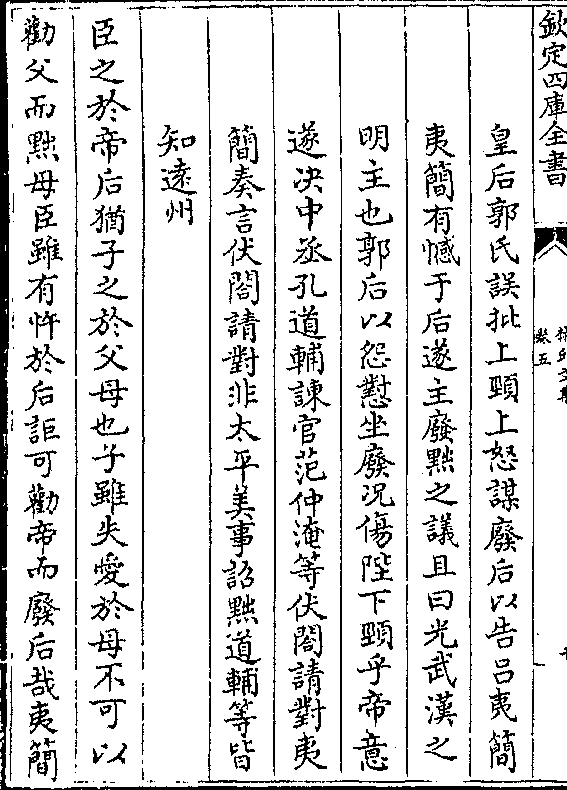 欽定四庫全書
卷五
皇后郭氏誤批上頸上怒謀廢后以告吕夷簡
夷簡有憾于后遂主廢黜之議且曰光武漢之
明主也郭后以怨懟坐廢况傷陛下頸乎帝意
遂决中丞孔道輔諌官范仲淹等伏閤請對夷
簡奏言伏閤請對非太平美事詔黜道輔等皆
知遠州
臣之於帝后猶子之於父母也子雖失愛於母不可以
勸父而黜母臣雖有忤於后詎可勸帝而廢后哉夷簡